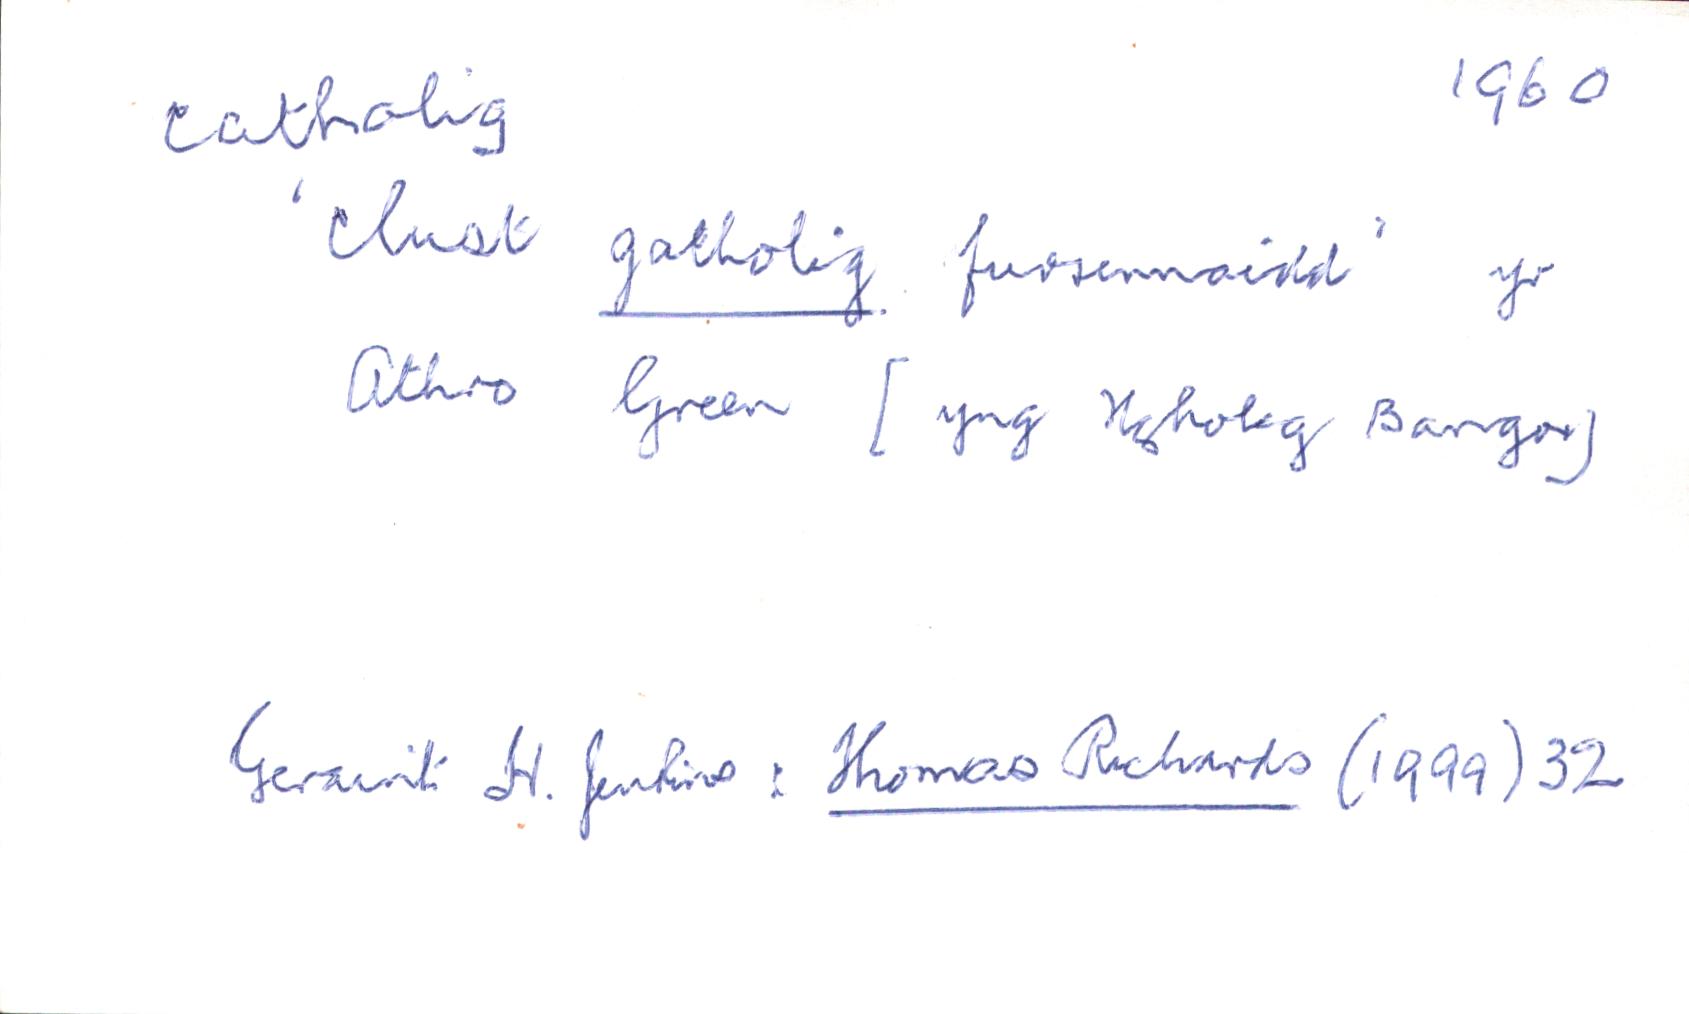 catholig 1960
'clust gatholig fursennaidd' yr
Athro Green [yng Ngholeg Bangor]
Geraint H. Jenkins: Thomas Richards (1999) 32